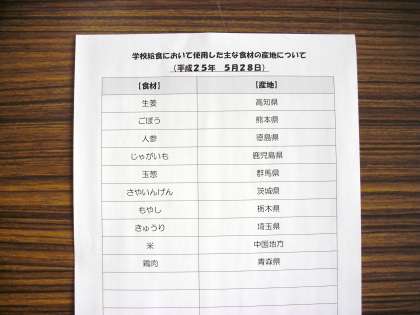 学校給食において使用した主な食材の産地について
（平成２５年　５月２８日）
【食材】　【産地】
生姜　高知県
ごぼう　熊本県
人参　徳島県
じゃがいも　鹿児島県
玉葱　群馬県
さやいんげん　茨城県
もやし　栃木県
きゅうり　埼玉県
米　中国地方
鶏肉　青森県